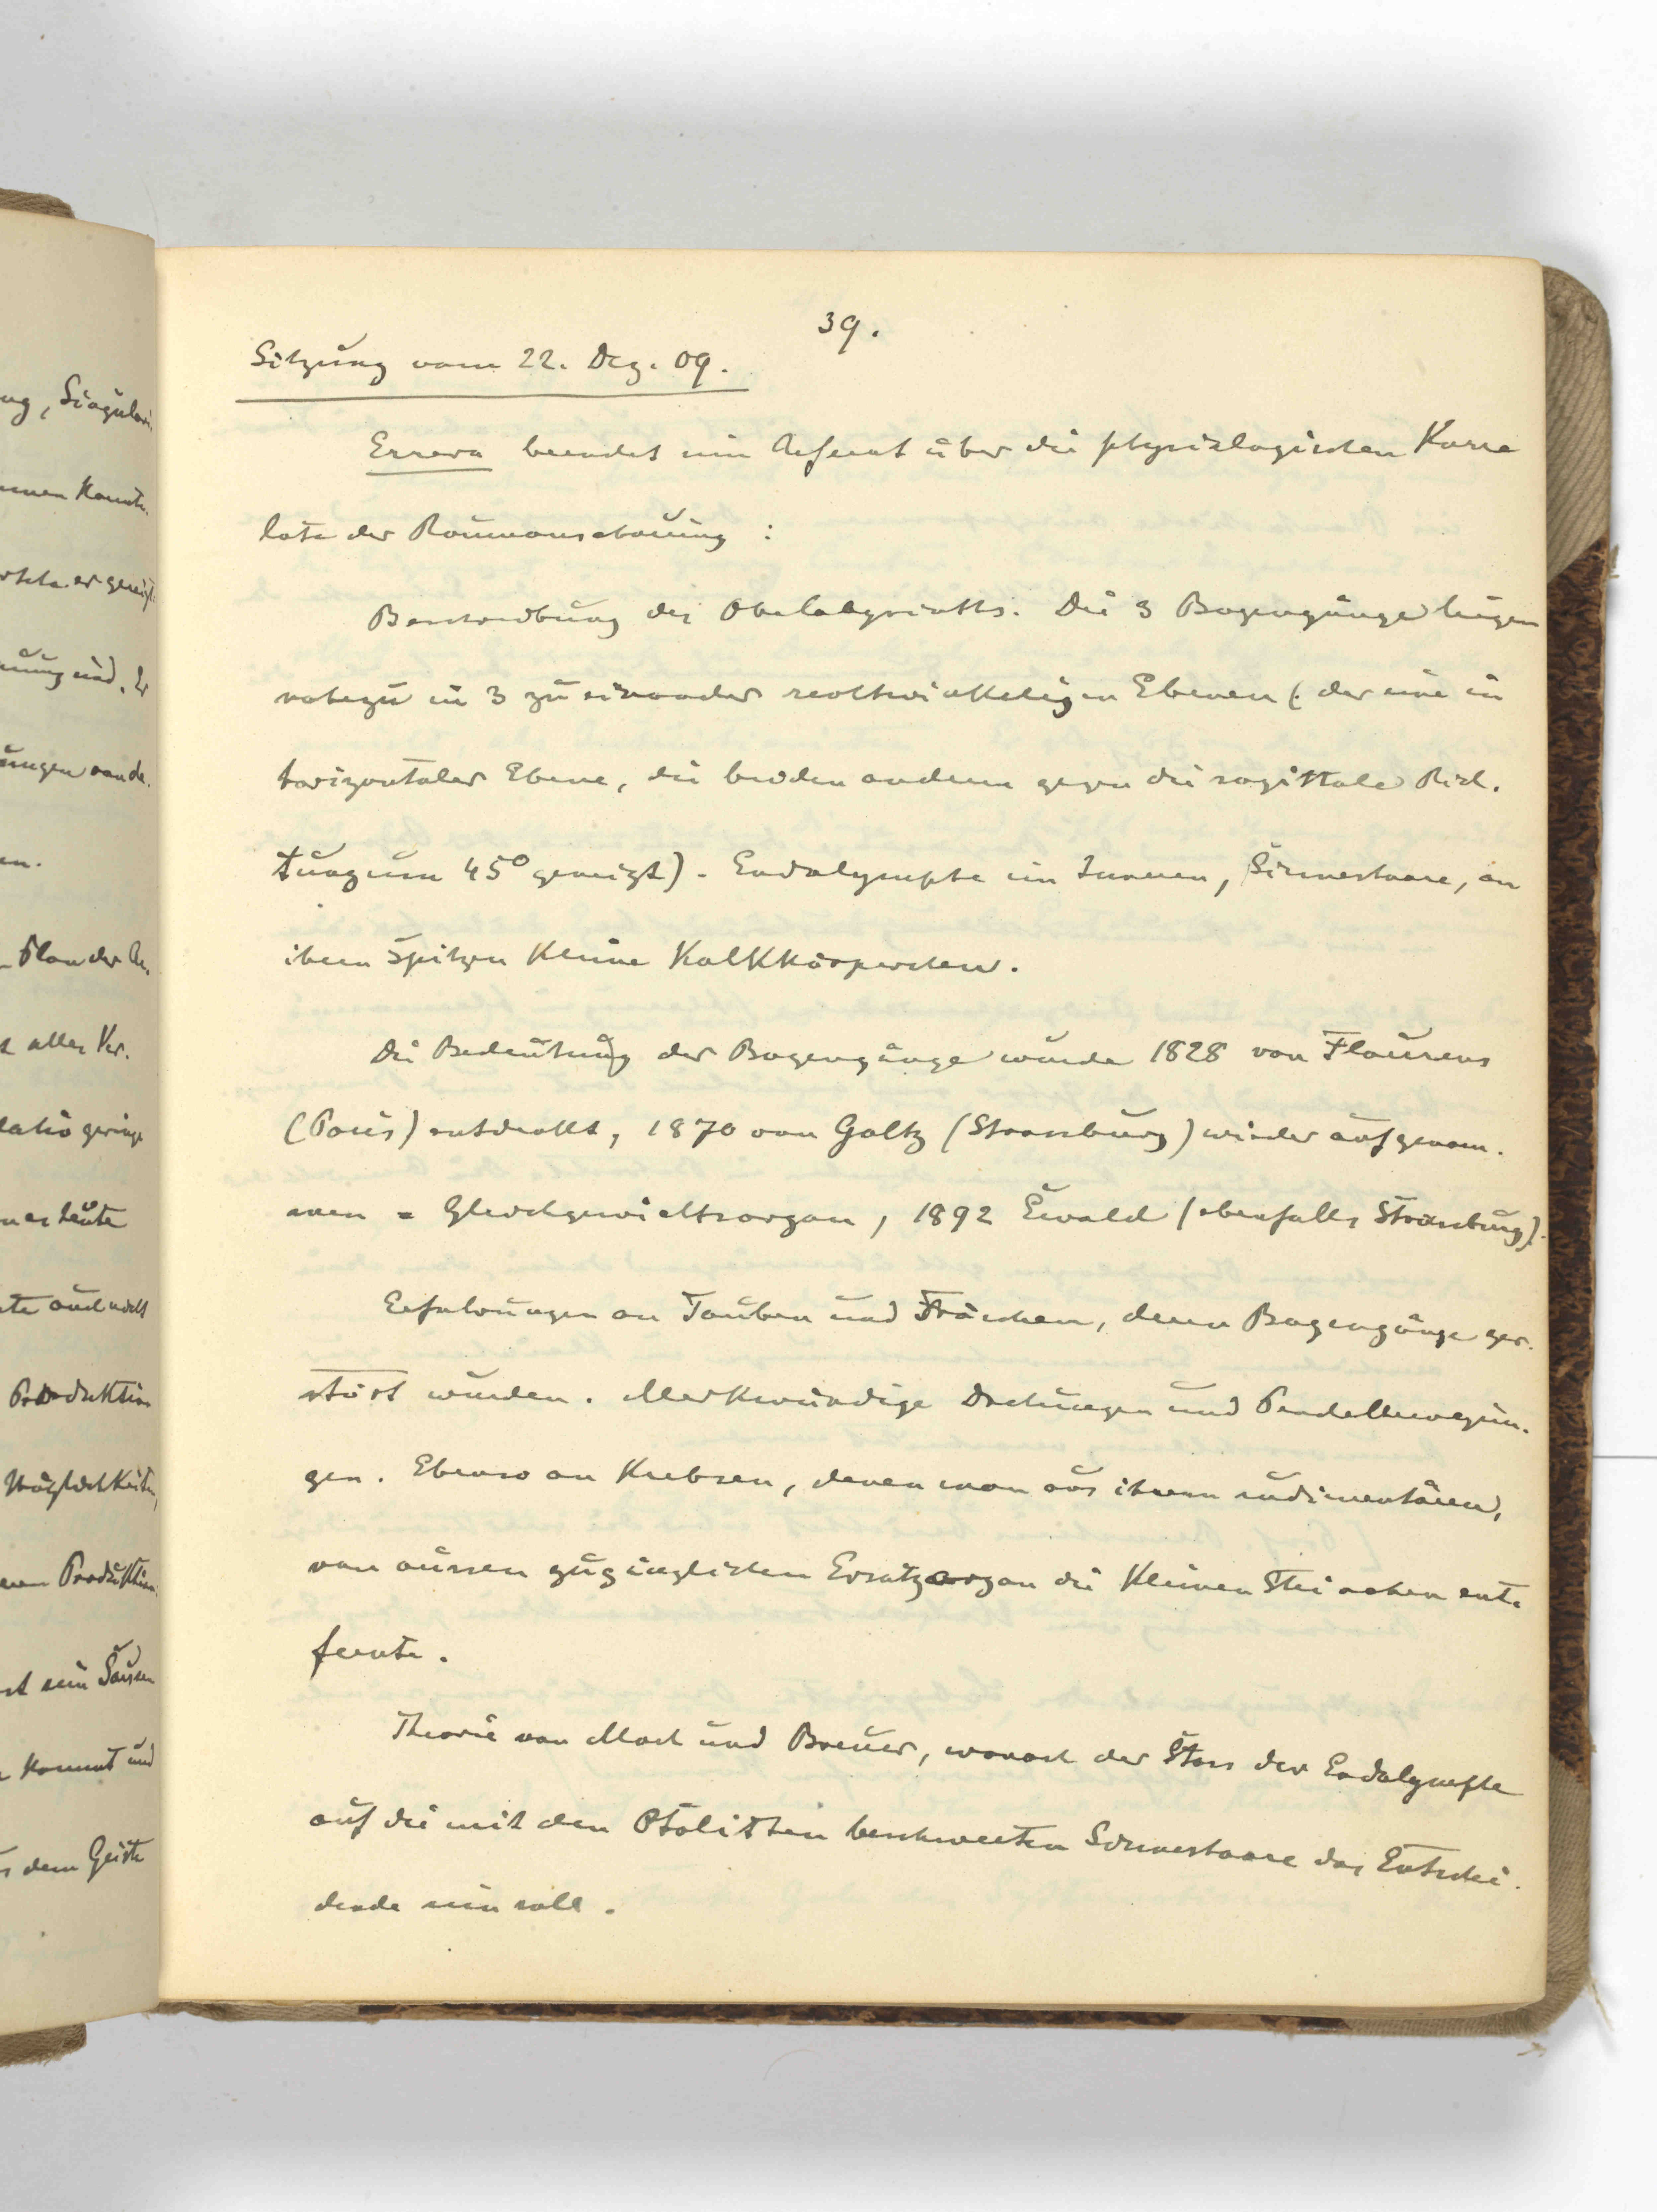 39.
Sitzung vom 22. Dez. 09.
Errera beendet sein Referat über die physiologischen Korre
late der Raumanschauung :
Beschreibung des Ohrlabyrinths. Die 3 Bogengänge liegen
nahezu in 3 zu einander rechtwinkligen Ebenen (der eine in
horizontaler Ebene, die beiden andern gegen die sagittale Rich-
tung um 45° geneigt). Endolymphe im Innern, Sinneshaare, an
ihren Spitzen kleine Kalkkörperchen.
Die Bedeutung der Bogengänge wurde 1828 von Flourens
(Paris) entdeckt, 1870 von Goltz (Strassburg) wieder aufgenom-
men = Gleichgewichtsorgan, 1892 Ewald (ebenfalls Strassburg).
Erfahrungen an Tauben und Fröschen, deren Bogengänge zer-
stört wurden. Merkwürdige Drehungen und Pendelbewegun-
gen. Ebenso an Krebsen, denen man aus ihrem rudimentären,
von aussen zugänglichen Ersatzorgan die kleinen Steinchen ent-
fernte.
Theorie von Mach und Breuer, wonach der Stoss der Endolymphe
auf die mit den Otolithen beschwerten Sinneshaare das Entschei-
dende sein soll.